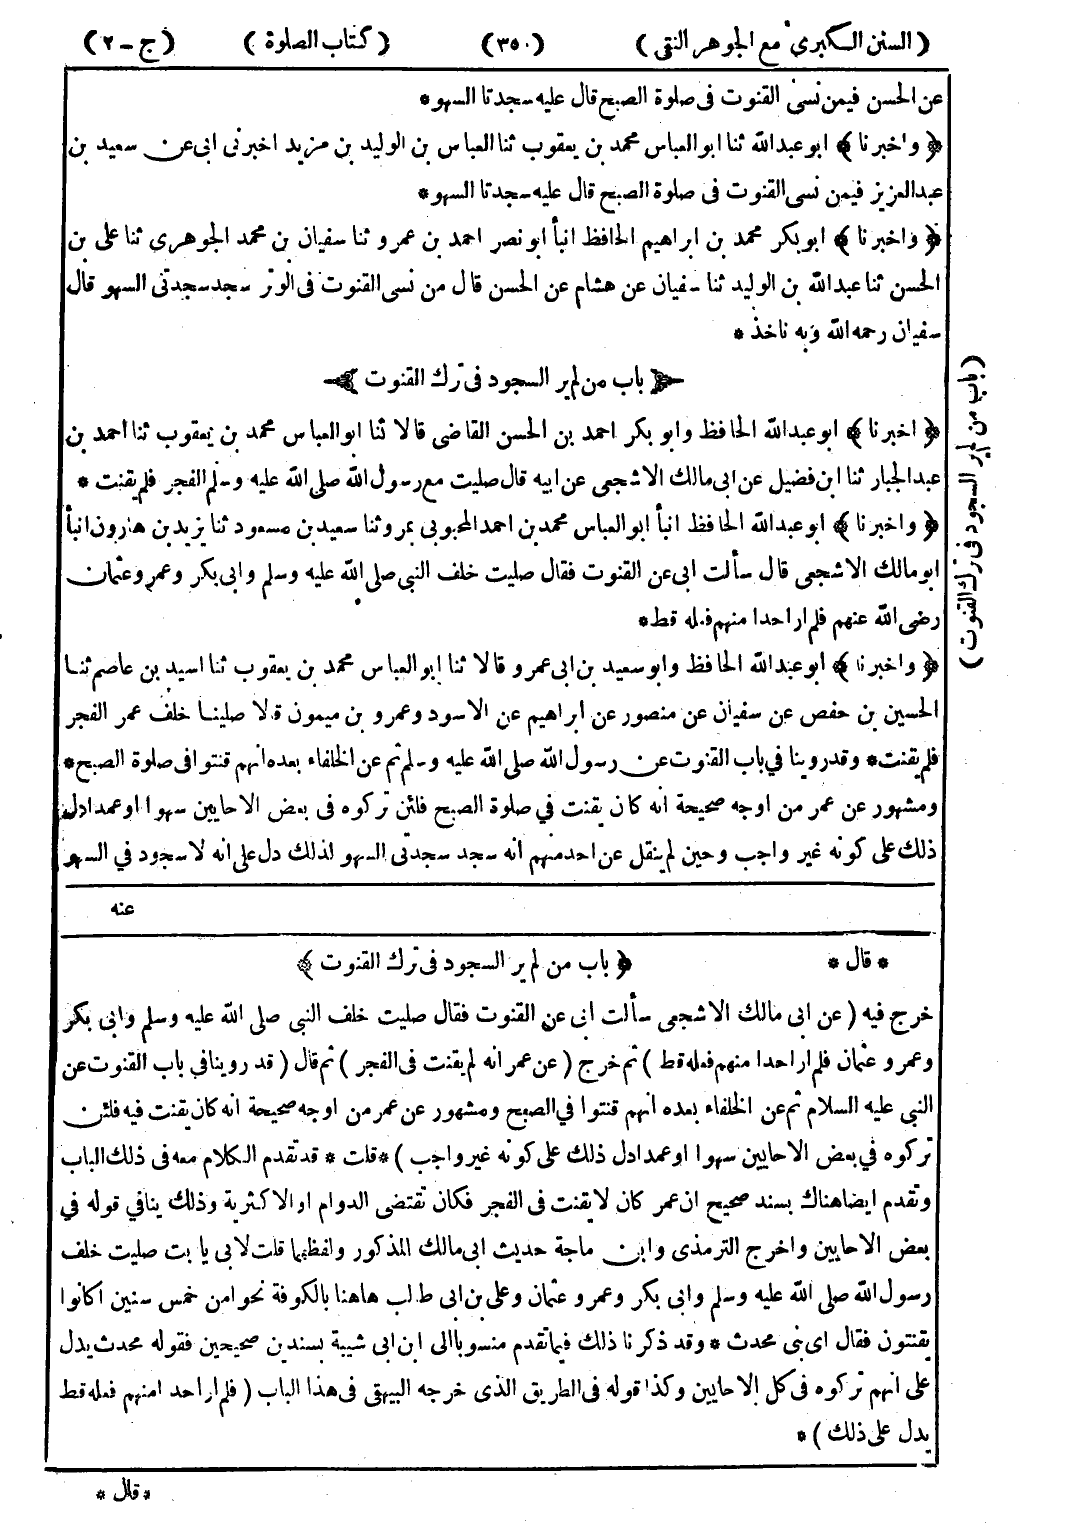 ( السنن الكبرى مع الجوهر النقى ) (٣٥٠) ( كتاب الصلوة ) ( ج - ٢ )
عن الحسن فيمن نسى القنوت فى صلوة الصبح قال عليه سجدتا السهو *
﴿ واخبرنا ﴾ ابو عبدالله ثنا ابو العباس محمد بن يعقوب ثنا العباس بن الوليد بن مزيد اخبرنى ابى عن سعيد بن
عبدالعزيز فيمن نسى القنوت فى صلوة الصبح قال عليه سجدتا السهو *
﴿ واخبرنا ﴾ ابو بكر محمد بن ابراهيم الحافظ انبأ ابو نصر احمد بن عمرو ثنا سفيان بن محمد الجوهرى ثنا على بن
الحسن ثنا عبدالله بن الوليد ثنا سفيان عن هشام عن الحسن قال من نسى القنوت فى الوتر سجد سجدتى السهو قال
سفيان رحمه الله وبه ناخذ *
باب من لم ير السجود فى ترك القنوت
﴿ اخبرنا ﴾ ابو عبدالله الحافظ وابو بكر احمد بن الحسن القاضى قالا ثنا ابو العباس محمد بن يعقوب ثنا احمد بن
عبدالجبار ثنا ابن فضيل عن ابى مالك الاشجعى عن ابيه قال صليت مع رسول الله صلى الله عليه وسلم الفجر فلم يقنت *
﴿ واخبرنا ﴾ ابو عبدالله الحافظ انبأ ابو العباس محمد بن احمد المحبوبى بمرو ثنا سعيد بن مسعود ثنا يزيد بن هارون انبأ
ابو مالك الاشجعى قال سألت ابى عن القنوت فقال صليت خلف النبى صلى الله عليه وسلم وابى بكر وعمر وعثمان
رضى الله عنهم فلم ار احدا منهم فعله قط *
﴿ واخبرنا ﴾ ابو عبدالله الحافظ وابو سعيد بن ابى عمرو قالا ثنا ابو العباس محمد بن يعقوب ثنا اسيد بن عاصم ثنا
الحسين بن حفص عن سفيان عن منصور عن ابراهيم عن الاسود وعمرو بن ميمون قالا صلينا خلف عمر الفجر
فلم يقنت * وقد روينا في باب القنوت عن رسول الله صلى الله عليه وسلم ثم عن الخلفاء بعده انهم قنتوا فى صلوة الصبح *
ومشهور عن عمر من اوجه صحيحة انه كان يقنت في صلوة الصبح فلئن تركوه فى بعض الاحايين سهوا او عمدا دل
ذلك على كونه غير واجب وحين لم ينقل عن احد منهم انه سجد سجدتى السهو لذلك دل على انه لا سجود في السهو
عنه
* قال * ﴿ باب من لم ير السجود فى ترك القنوت ﴾
خرج فيه ( عن ابى مالك الاشجعى سألت ابى عن القنوت فقال صليت خلف النبى صلى الله عليه وسلم وابى بكر
وعمر وعثمان فلم ار احدا منهم فعله قط ) ثم خرج ( عن عمر انه لم يقنت فى الفجر ) ثم قال ( قد روينا في باب القنوت عن
النبى عليه السلام ثم عن الخلفاء بعده انهم قنتوا في الصبح ومشهور عن عمر من اوجه صحيحة انه كان يقنت فيه فلئن
تركوه في بعض الاحايين سهوا او عمدا دل ذلك على كونه غير واجب ) * قلت * قد تقدم الكلام معه فى ذلك الباب
وتقدم ايضا هناك بسند صحيح ان عمر كان لا يقنت فى الفجر فكان تقتضى الدوام او الاكثرية وذلك ينافي قوله في
بعض الاحايين واخرج الترمذى وابن ماجة حديث ابى مالك المذكور ولفظهما قلت لابى يا بت صليت خلف
رسول الله صلى الله عليه وسلم وابى بكر وعمر وعثمان وعلى بن ابى طالب هاهنا بالكوفة نحوا من خمس سنين اكانوا
يقنتون فقال اى بنى محدث * وقد ذكرنا ذلك فيما تقدم منسوبا الى ابن ابى شيبة بسندين صحيحين فقوله محدث يدل
على انهم تركوه فى كل الاحايين وكذا قوله فى الطريق الذى خرجه البيهقى فى هذا الباب ( فلم ار احدا منهم فعله قط
يدل على ذلك ) *
* قال *
( باب من لم ير السجود فى ترك القنوت )